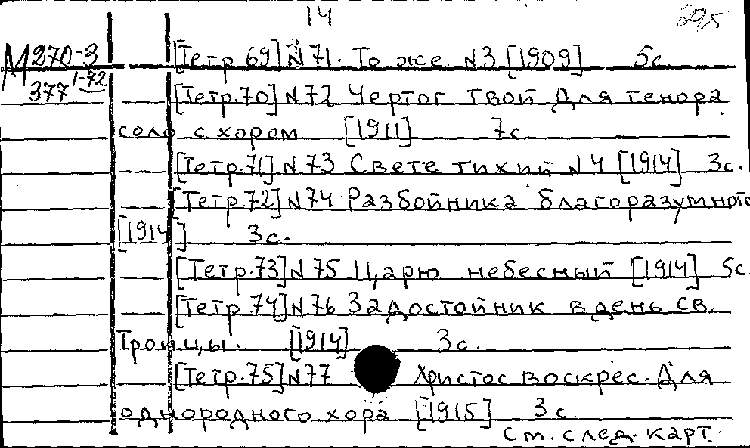 14 295
М 270-3 [Тетр 69] N 71. То же N3 [1909] 5с.
377 1-72 [Тетр.70] N72 Чертог Твой Для тенора
соло с хором [1911] 7с
[Тетр.71] N73 Свете тихий N4 [1914] 3с.
[Тетр.72] N74 Разбойника благоразумного
[1914] 3с.
[Тетр.73] N75 Царю небесный [1914] 5с
[Тетр 74] N76 Задостойник в день св.
Троицы. [1914] 3с.
[Тетр.75] N77 Христос воскрес. Для
однородного хора [1915] 3с
См. след. карт.